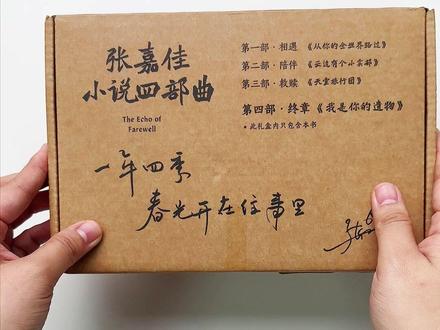 张嘉佳
小说四部曲
The Echo of
Farewell
第一部·相遇 《从你的全世界路过》
第二部·陪伴 《云边有个小卖部》
第三部·救赎 《天堂旅行团》
第四部·终章 《我是你的遗物》
• 此礼盒内只包含本书
一年四季
春光开在往事里